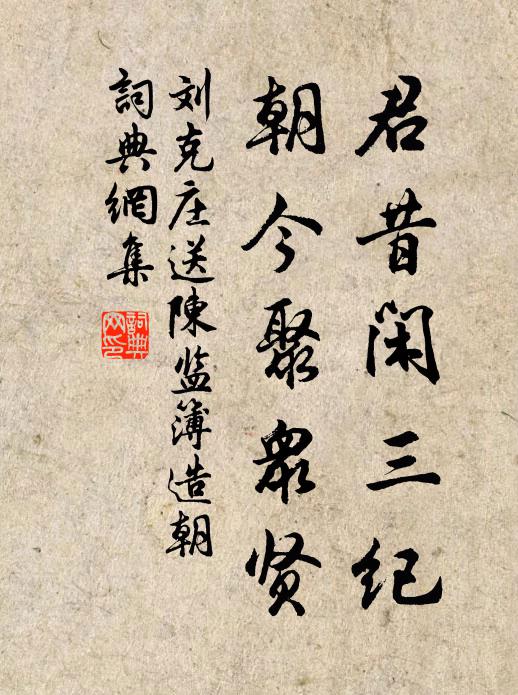 君昔闲三纪
朝今聚众贤
刘克庄送陳监簿造朝
詞典網集
詞典
网印